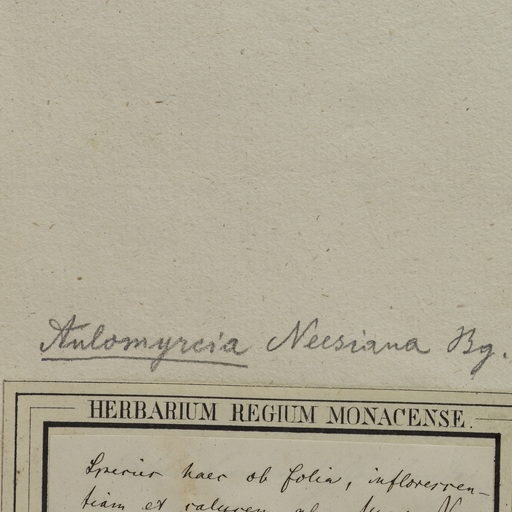 Aulomyrcia Neesiana Bg.
HERBARIUM REGIUM MONACENSE.
Species haec ob folia, inflorescen-
tiam et calycem